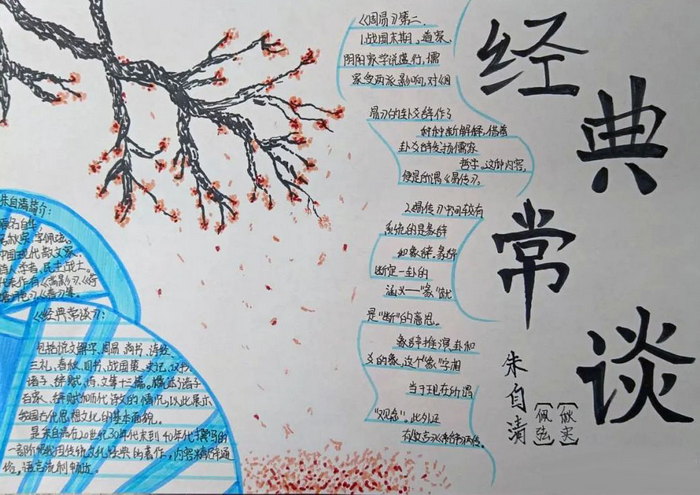 经典
常谈
朱自清
佩弦
秋实
《周易》第二
1.战国末期，道家、
阴阳家学说盛行，儒
家受两家影响，对《周
易》的卦爻辞作了
种种新解释，借着
卦爻辞发扬儒家
哲学，这种内容，
便是所谓《易传》。
2.《易传》中间较有
系统的是彖辞
和象辞，彖辞
断定一卦的
涵义——"彖"就
是"断"的意思。
象辞推演卦和
爻的象，这个"象"字相
当于现在所谓
"观念"。此外还
朱自清简介：
原名自华
号秋实，字佩弦。
中国现代散文家、
诗人、学者、民主战士。
代表作有
《经典常谈》：
包括说文解字、周易、尚书、诗经、
三礼、春秋、四书、战国策、史记、汉书、
诸子、辞赋、诗、文等十三篇。
百家、辞赋
我国古代思想文化的基本面貌。
是朱自清在20世纪30年代末到40年代撰写的
一部介绍我国传统文化经典的著作，内容精辟通
俗，语言流利畅达。